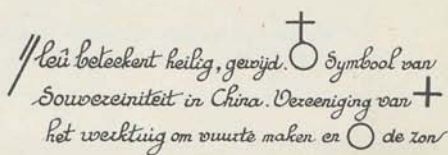 leû beteekent heilig, gewijd. Symbool van
Souvereiniteit in China. Vereeniging van
het werktuig om vuurte maken en de zon